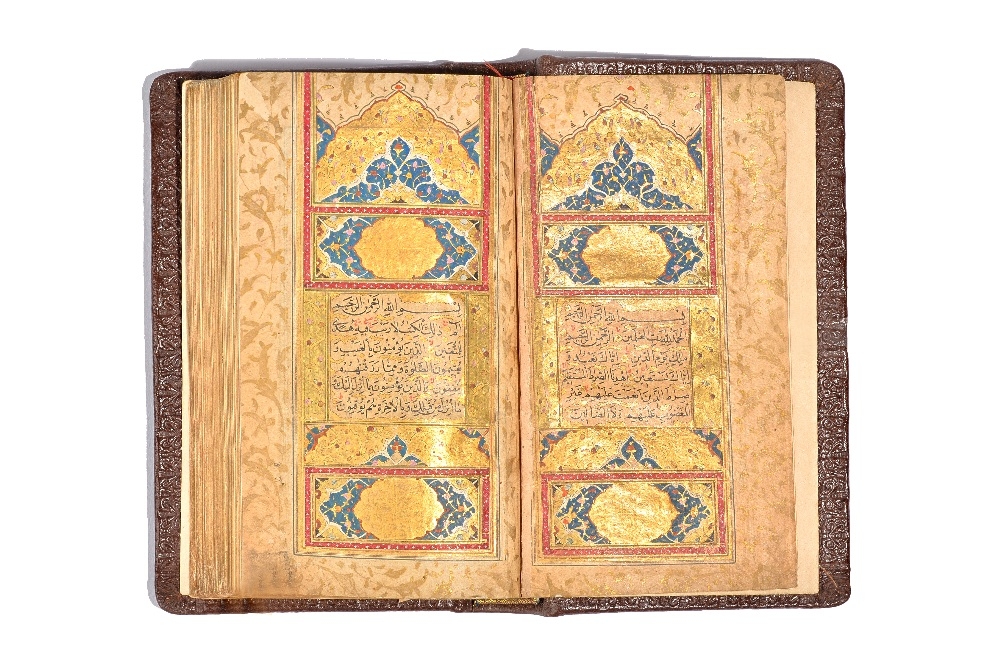 بسم الله الرحمن الرحيم
الحمد لله رب العلمين الرحمن الرحيم
ملك يوم الدين اياك نعبد و
اياك نستعين اهدنا الصراط المستقيم
صراط الذين انعمت عليهم غير
المغضوب عليهم ولا الضالين
بسم الله الرحمن الرحيم
الم ذلك الكتب لا ريب فيه هدى
للمتقين الذين يؤمنون بالغيب و
يقيمون الصلوة ومما رزقنهم
ينفقون والذين يؤمنون بما انزل اليك
وما انزل من قبلك وبالاخرة هم يوقنون